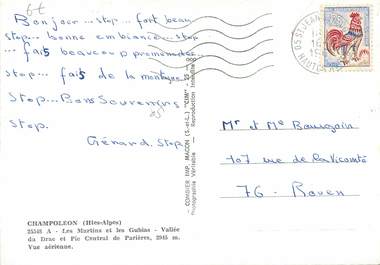 6€
Bonjour ... stop ... fort beau
stop ... bonne ambiance ... stop
... fais beaucoup promenades
stop ... fais de la montagne
Stop ... Bons Souvenirs
Stop.
Gérard. Stop.
CHAMPOLÉON (Htes-Alpes)
25548 A - Les Martins et les Gubias - Vallée
du Drac et Pic Central de Parières, 2945 m.
Vue aérienne.
COMBIER IMP. MACON (S.-et-L.) "CIM"
Photographie Véritable — Reproduction Interdite
05 ST JEAN
HAUTES
Mr et Me Bourgoin
107 rue de la Vicomté
76 - Rouen